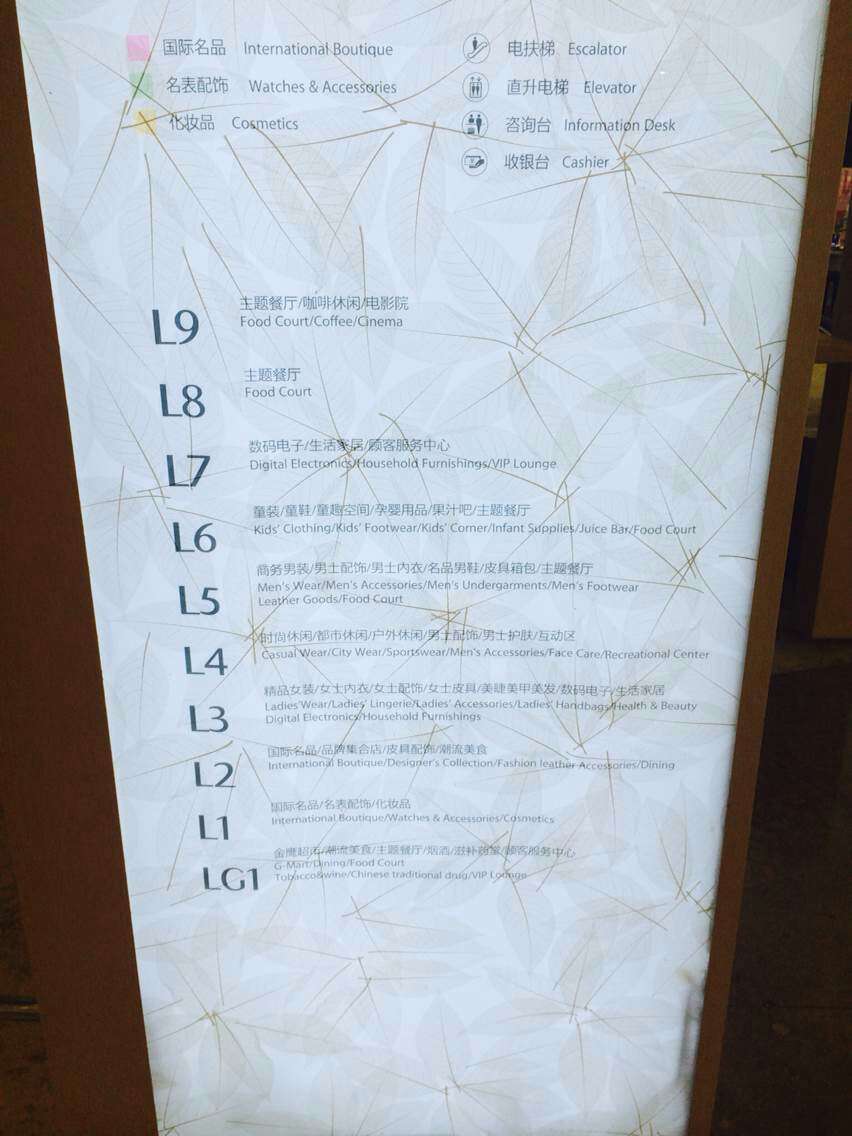 国际名品 International Boutique
名表配饰 Watches & Accessories
化妆品 Cosmetics
电扶梯 Escalator
直升电梯 Elevator
咨询台 Information Desk
收银台 Cashier
L9
主题餐厅/咖啡休闲/电影院
Food Court/Coffee/Cinema
L8
主题餐厅
Food Court
L7
数码电子/生活家居/顾客服务中心
Digital Electronics/Household Furnishings/VIP Lounge
L6
童装/童鞋/童趣空间/孕婴用品/果汁吧/主题餐厅
Kids' Clothing/Kids' Footwear/Kids' Corner/Infant Supplies/Juice Bar/Food Court
L5
商务男装/男士配饰/男士内衣/名品男鞋/皮具箱包/主题餐厅
Men's Wear/Men's Accessories/Men's Undergarments/Men's Footwear
Leather Goods/Food Court
L4
时尚休闲/都市休闲/户外休闲/男士配饰/男士护肤/互动区
Casual Wear/City Wear/Sportswear/Men's Accessories/Face Care/Recreational Center
L3
精品女装/女士内衣/女士配饰/女士皮具/美睫美甲美发/数码电子/生活家居
Ladies'Wear/Ladies' Lingerie/Ladies' Accessories/Ladies' Handbags/Health & Beauty
Digital Electronics/Household Furnishings
L2
国际名品/品牌集合店/皮具配饰/潮流美食
International Boutique/Designer's Collection/Fashion leather Accessories/Dining
L1
国际名品/名表配饰/化妆品
International Boutique/Watches & Accessories/Cosmetics
LG1
金鹰超市/潮流美食/主题餐厅/烟酒/滋补药堂/顾客服务中心
G-Mart/Dining/Food Court
Tobacco&wine/Chinese traditional drug/VIP Lounge